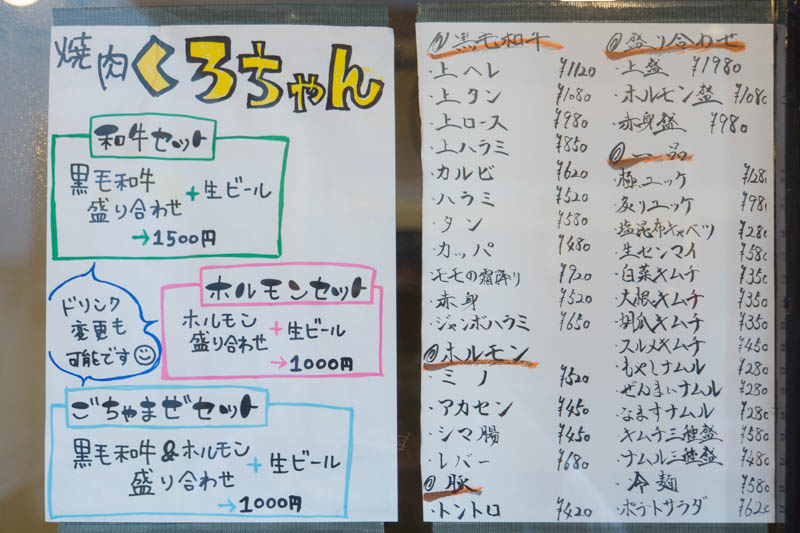 焼肉くろちゃん
和牛セット
黒毛和牛
盛り合わせ
+生ビール
→1500円
ホルモンセット
ホルモン
盛り合わせ
+生ビール
→1000円
ドリンク
変更も
可能です
ごちゃまぜセット
黒毛和牛&ホルモン
盛り合わせ
+生ビール
→1000円
黒毛和牛
・上ヘレ ¥1120
・上タン ¥1080
・上ロース ¥980
・上ハラミ ¥850
・カルビ ¥620
・ハラミ ¥520
・タン ¥580
・カッパ ¥480
・モモの霜降り ¥920
・赤身 ¥520
・ジャンボハラミ ¥650
ホルモン
・ミノ ¥520
・アカセン ¥450
・シマ腸 ¥450
・レバー ¥680
豚
・トントロ ¥420
盛り合わせ
・上盛 ¥1980
・ホルモン盛 ¥1080
・赤身盛 ¥980
一品
・極ユッケ ¥1280
・炙りユッケ ¥980
・塩昆布キャベツ ¥280
・生センマイ ¥580
・白菜キムチ ¥350
・大根キムチ ¥350
・胡瓜キムチ ¥350
・スルメキムチ ¥450
・もやしナムル ¥280
・ぜんまいナムル ¥280
・なますナムル ¥280
・キムチ三種盛 ¥580
・ナムル三種盛 ¥480
・冷麺 ¥580
・ポテトサラダ ¥620